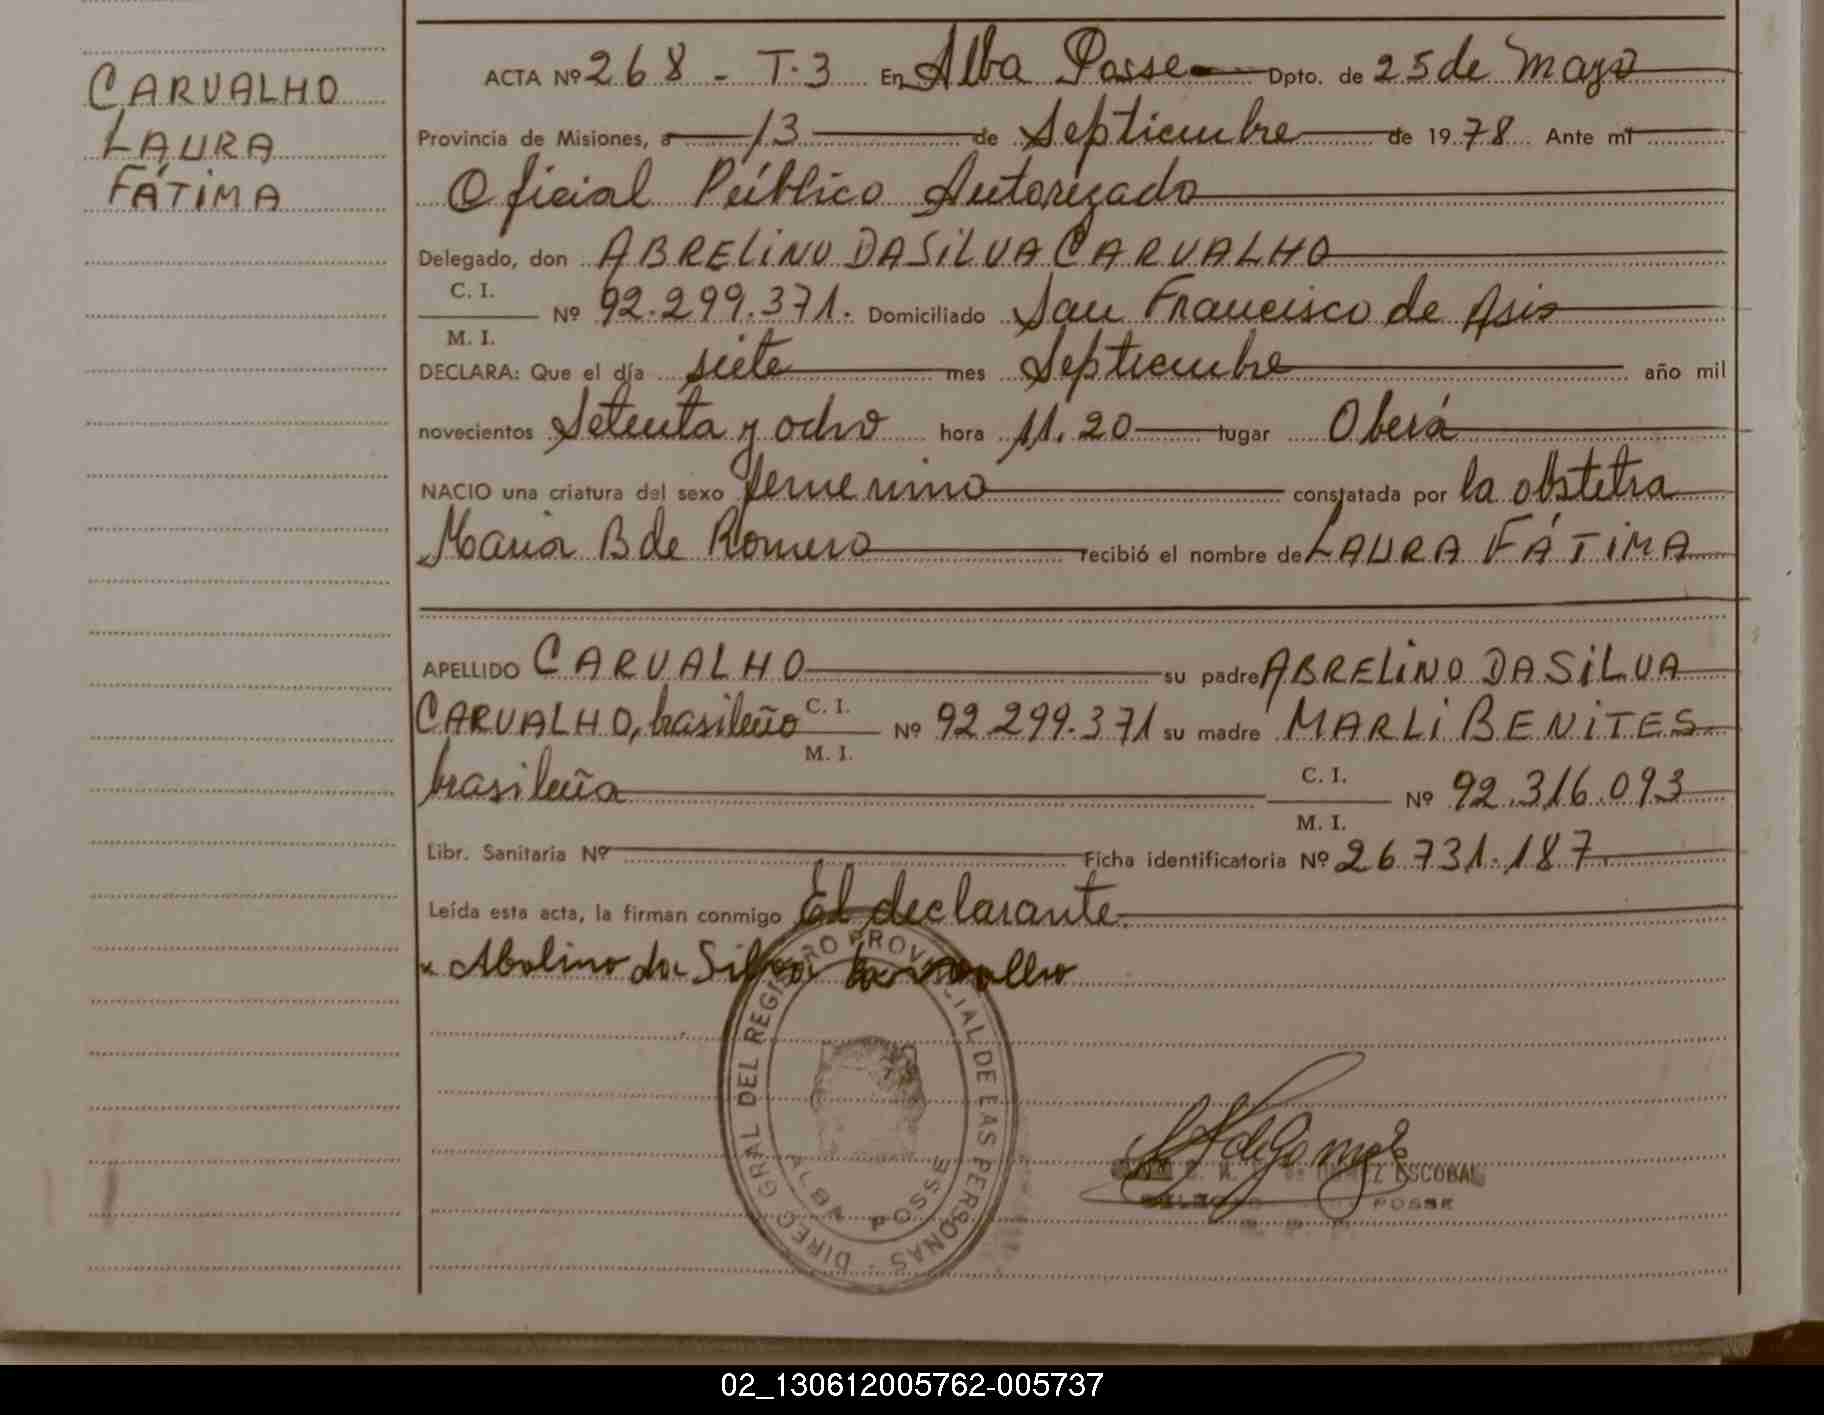 CARVALHO
LAURA
FÁTIMA
ACTA Nº 268 - T.3 En Alba Posse Dpto. de 25 de Mayo
Provincia de Misiones, a 13 de Septiembre de 1978 Ante mí
Oficial Público Autorizado
Delegado, don ABRELINO DA SILVA CARVALHO
C. I.
Nº 92.299.371. Domiciliado San Francisco de Asis
M. I.
DECLARA: Que el día siete mes Septiembre año mil
novecientos Setenta y ocho hora 11.20 lugar Oberá
NACIO una criatura del sexo femenino constatada por la obstetra
Maria B de Romero recibió el nombre de LAURA FÁTIMA
APELLIDO CARVALHO su padre ABRELINO DA SILVA
CARVALHO, brasileño C. I. Nº 92.299.371 su madre MARLI BENITES
M. I.
brasileña C. I. Nº 92.316.093
M. I.
Libr. Sanitaria Nº Ficha identificatoria Nº 26.731.187
Leída esta acta, la firman conmigo El declarante.
x Abelino da Silva Carvalho
DIREC. GRAL DEL REGISTRO PROVINCIAL DE LAS PERSONAS
ALBA POSSE
ESCOBAR
POSSE
02_130612005762-005737